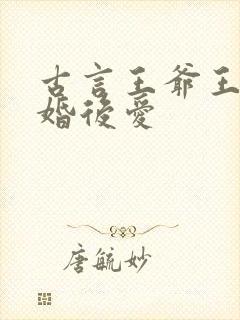 古言王爺王
婚後愛
唐毓妙